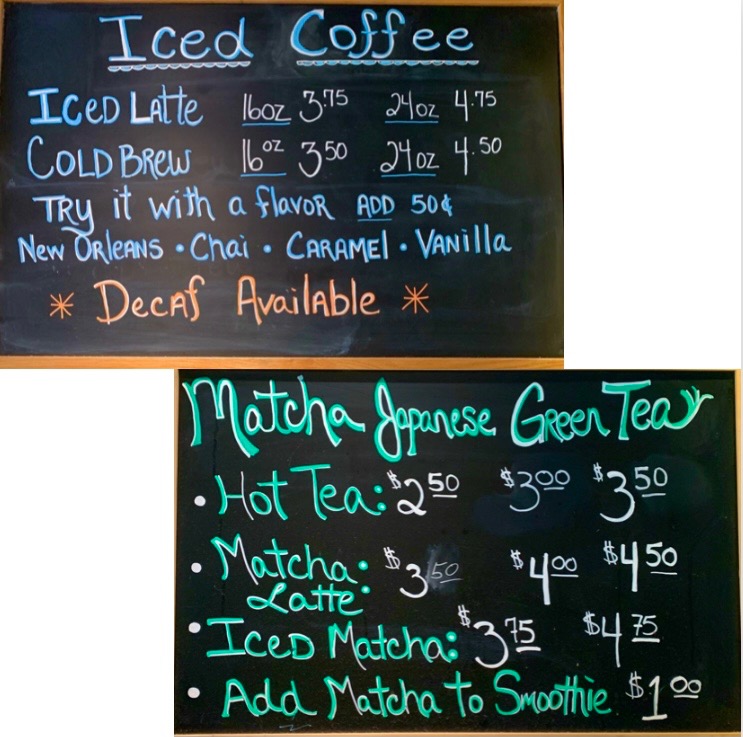 Iced Coffee
Iced Latte 16oz 3.75 24oz 4.75
Cold Brew 16oz 3.50 24oz 4.50
Try it with a flavor ADD 50¢
New Orleans • Chai • Caramel • Vanilla
* Decaf Available *
Matcha Japanese Green Tea
• Hot Tea: $2.50 $3.00 $3.50
• Matcha Latte: $3.50 $4.00 $4.50
• Iced Matcha: $3.75 $4.75
• Add Matcha to Smoothie $1.00